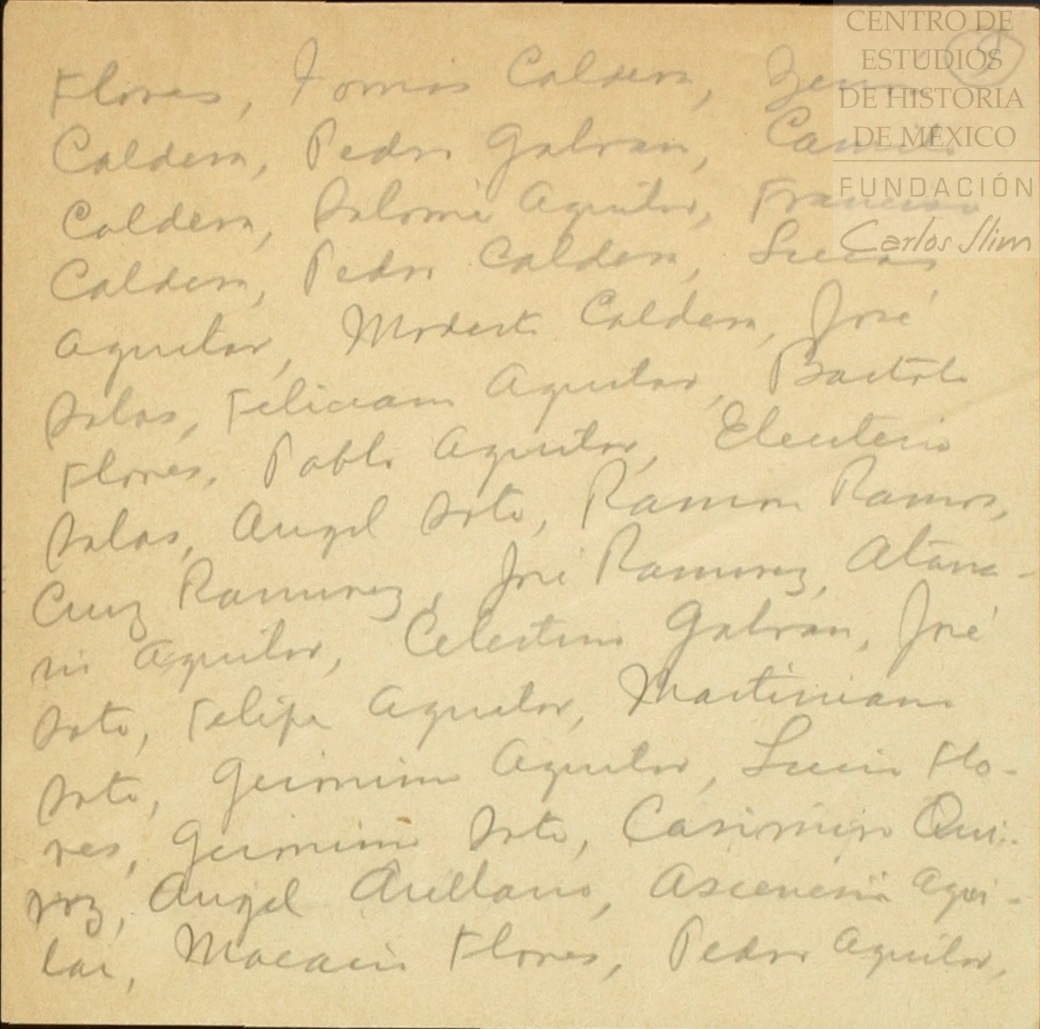 CENTRO DE
ESTUDIOS
DE HISTORIA
DE MÉXICO
FUNDACIÓN
Carlos Slim
Flores, Tomás Caldera,
Caldera, Pedro Galvan, Camilo
Caldera, Salomé Aguilar, Francisco
Caldera, Pedro Caldera, Lucas
Aguilar, Modesto Caldera, José
Salas, Feliciano Aguilar, Bartolo
Flores, Pablo Aguilar, Eleuterio
Salas, Angel Soto, Ramon Ramos,
Cruz Ramirez, José Ramirez, Atana-
sio Aguilar, Celestino Galvan, José
Soto, Felipe Aguilar, Martiniano
Soto, Gerónimo Aguilar, Lucio Flo-
res, Gerónimo Soto, Casimiro Qui-
roz, Angel Arellano, Ascencio Agui-
lar, Macario Flores, Pedro Aguilar,